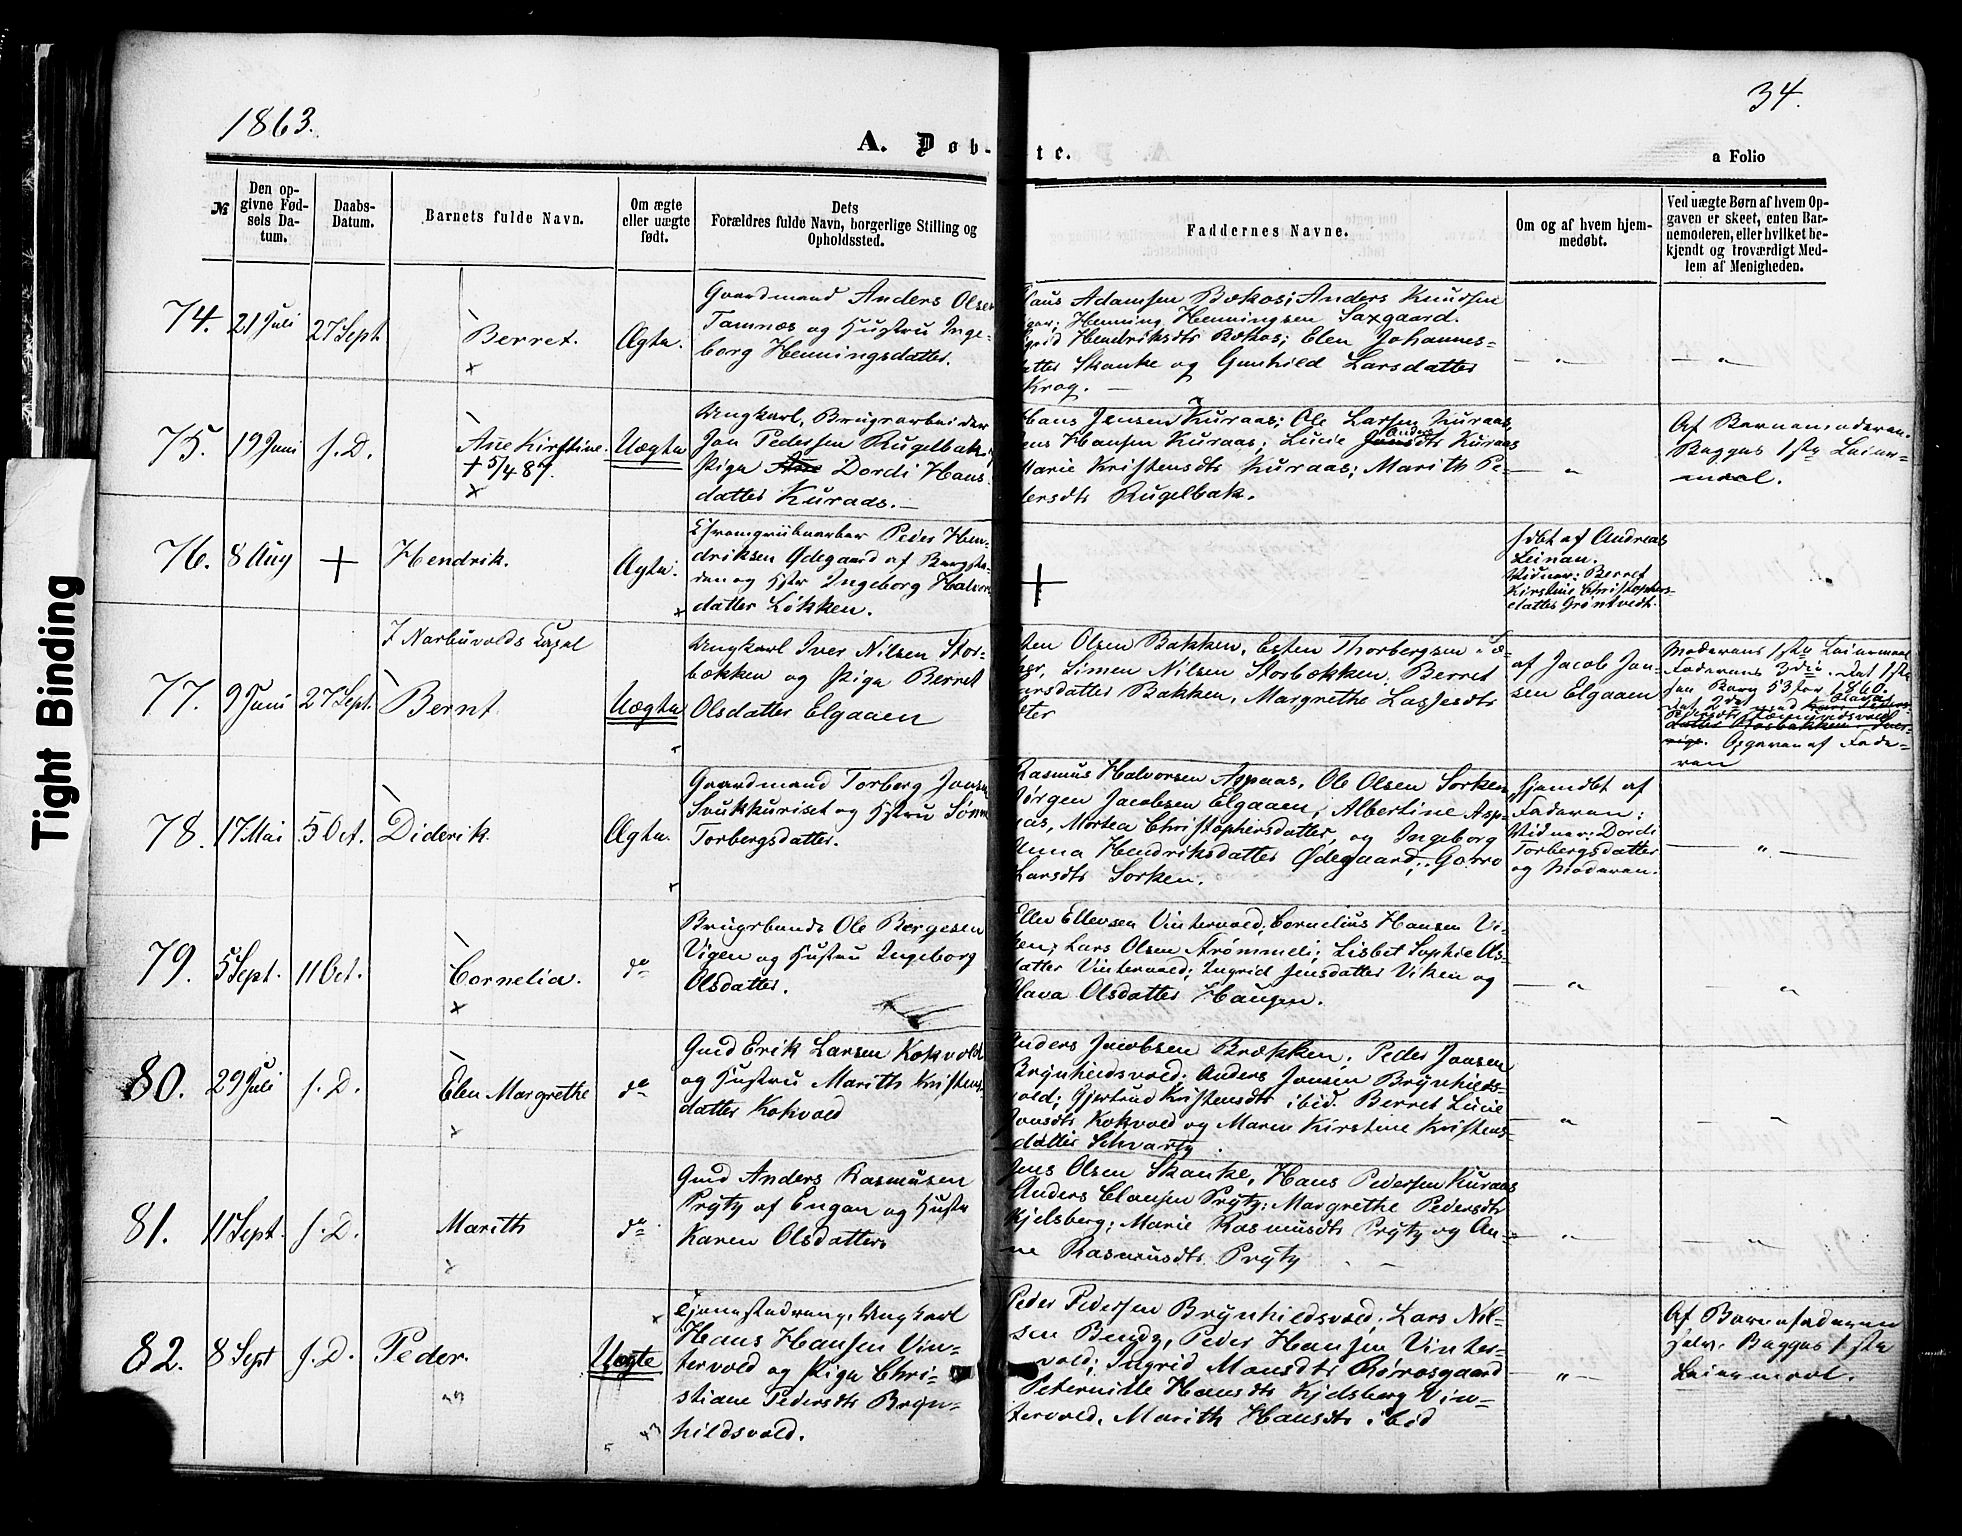 Tight Binding
1863.
34.
A. Døb-te.
a Folio
№
Den op-
givne Fød-
sels Da-
tum.
Daabs-
Datum.
Barnets fulde Navn.
Om ægte
eller uægte
født.
Dets
Forældres fulde Navn, borgerlige Stilling og
Opholdssted.
Faddernes Navne.
Om og af hvem hjem-
medøbt.
Ved uægte Børn af hvem Op-
gaven er skeet, enten Bar-
nemoderen, eller hvilket be-
kjendt og troværdigt Med-
lem af Menigheden.
74.
21 Juli
27 Sept
Berret.
Ægte.
Gaardmand Anders Olsen
Tamnæs og Hustru Inge-
borg Henningsdatter.
Adamsen Bækos; Anders Knudsen
Henning Henningsen Saxgaard.
Hendriksdtr Bækos; Elen Johannes-
datter Skanke og Gunhild Larsdatter
Krog.
75.
19 Juni
s. D.
Ane Kirstine.
+ 5/4 87.
Uægte
Ungkarl, Brugsarbeider
Jon Pedersen Rugelbak
Pige Ane Dordi Hans
datter Kuraas.
Hans Jensen Kuraas; Ole Larsen Kuraas,
Hansen Kuraas; Lucie Kuraas
Marie Kristensdtr Kuraas; Marith Pe-
dersdtr Rugelbak.
Af Barnemoderen.
Begges 1ste Leier-
maal.
76.
8 Aug
+
Hendrik.
Ægte.
Peder Hen-
driksen Ødegaard af Bergsta-
den og Hstr Ingeborg Halvors
datter Løkken.
+
hdbt af Andreas
Leinan.
Vidner: Berret
Kirstine Christophers-
datter Grøntvedt.
I Narbuvolds Capel
77.
9 Juni
27 Sept.
Bernt.
Uægte
Ungkarl Iver Nilsen Stor-
bækken og Pige Berret
Olsdatter Elgaaen
Olsen Bakken, Esten Thorbergsen
Simen Nilsen Storbækken, Berret
Larsdatter Bakken, Margrethe Lassesdtr
af Jacob Jon-
sen Elgaaen
Moderens 1ste Leiermaal
Faderens 3die. Det 1ste
Opgaven af Fade-
ren
78.
17 Mai
5 Oct.
Diderik.
Ægte.
Gaardmand Torberg Jonsen
Svukkuriset og Hstru
Torbergsdatter.
Rasmus Halvorsen Aspaas, Ole Olsen Sorken
Jørgen Jacobsen Elgaaen, Albertine Asp-
aas, Mortea Christophersdatter, og Ingeborg
Anna Hendriksdatter Ødegaard; Gorro
Larsdtr Sorken.
Hjemdbt af
Faderen:
Vidner: Dordi
Torbergsdatter
og Moderen.
79.
5 Sept.
11 Oct.
Cornelia.
do
Ole Børgesen
Vigen og Hustru Ingeborg
Olsdatter.
Ellev Ellevsen Vintervold, Cornelius Hansen Vi-
ken; Lars Olsen Strømmeli; Lisbet Sophie Ols-
datter Vintervold; Ingrid Jensdatter Viken og
Olava Olsdatter Haugen.
80.
29 Juli
s. D.
Elen Margrethe
do
Gmd Erik Larsen Kokvold
og Hustru Marith Kristens
datter Kokvold
Anders Jacobsen Brækken; Peder Jonsen
Brynhildsvold; Anders Jonsen Brynhilds-
vold; Gjertrud Kristensdtr ibid. Berret Lucie
Jonsdtr Kokvold og Maren Kirstine Kristens-
datter Schvartz.
81.
11 Sept.
s. D.
Marith
do
Gmd Anders Rasmusen
Prytz af Engan og Hustr
Karen Olsdatter
Jens Olsen Skanke, Hans Pedersen Kuraas
Anders Clausen Prytz; Margrethe Pedersdtr
Kjelsberg; Marie Rasmusdtr Prytz og An-
ne Rasmusdtr Prytz
82.
8 Sept
s. D.
Peder.
Uægte
Tjenestedreng, Ungkarl
Hans Hansen Vin-
tervold og Pige Chri-
stiane Pedersdtr Bryn-
hildsvold.
Peder Pedersen Brynhildsvold, Lars Nil-
sen Bendz, Peder Hansen Vinter-
vold; Ingrid Monsdtr Rørosgaard
Peternille Hansdtr Kjelsberg Vin-
tervold, Marith Hansdtr ibid
Af Barnefaderen
selv. Begges 1ste
Leiermaal.